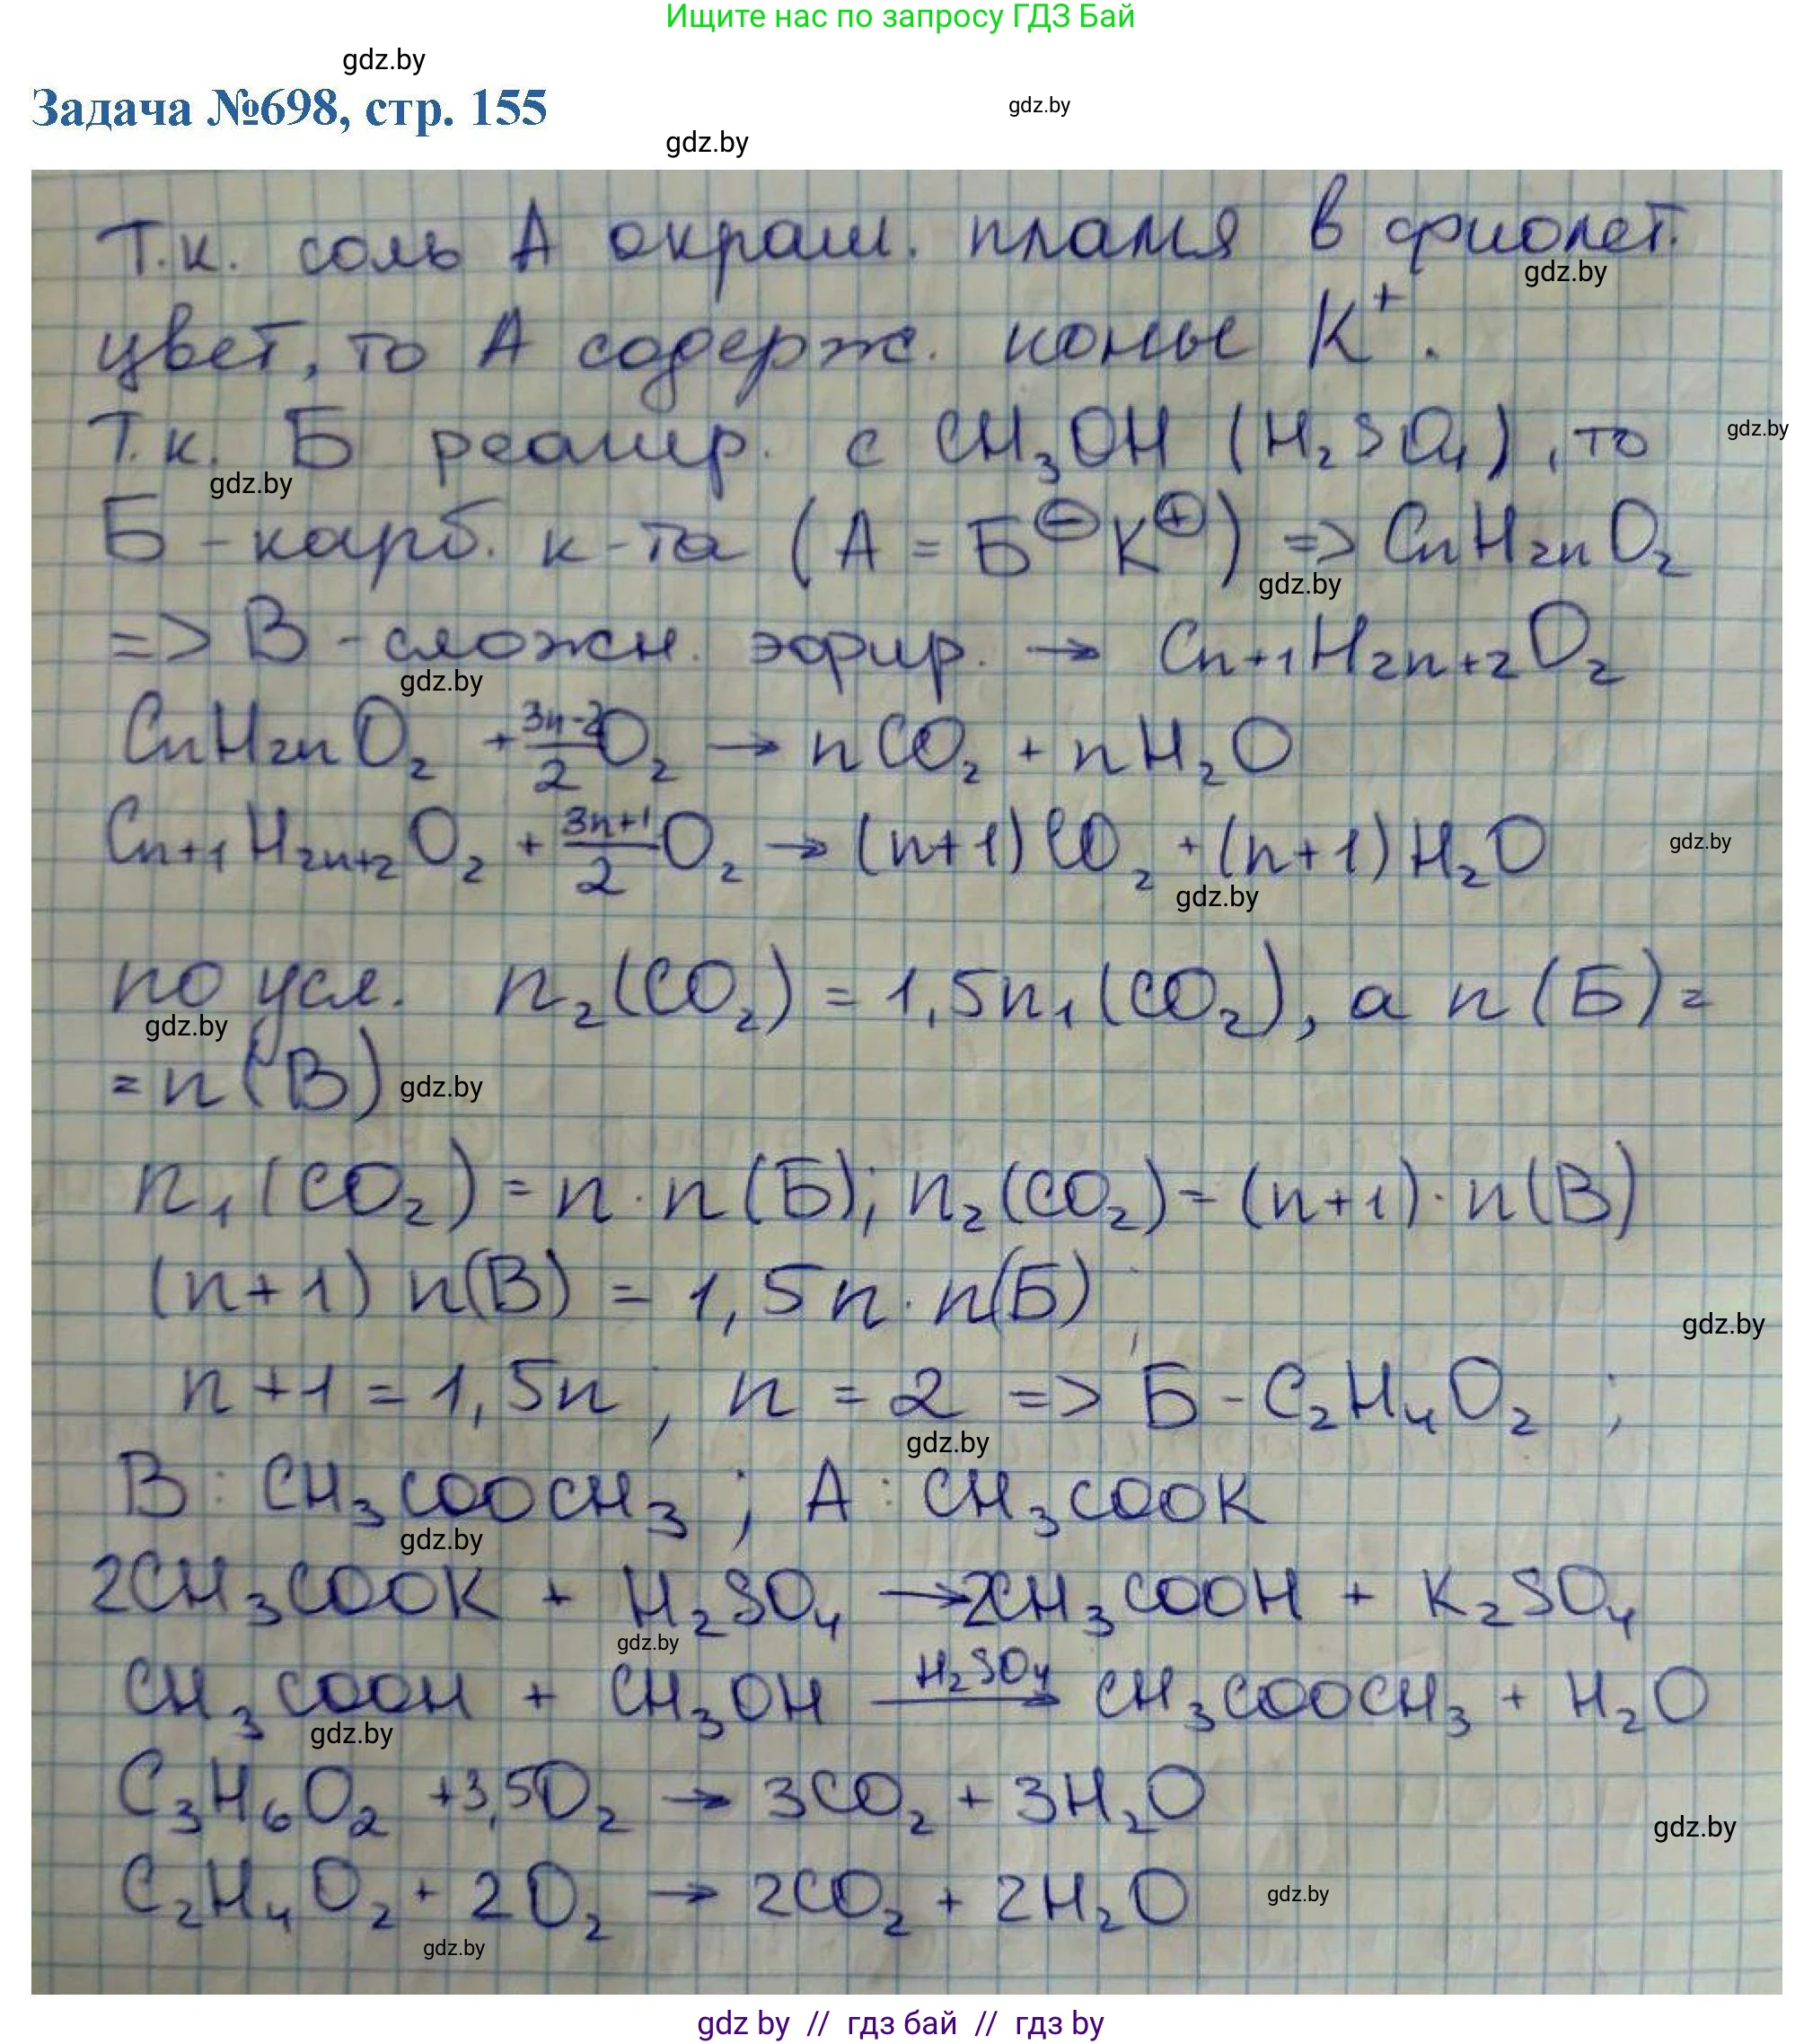 Ищите нас по запросу ГДЗ Бай
gdz.by
Задача №698, стр. 155
gdz.by
gdz.by
Т.к. соль А окраш. пламя в фиолет.
gdz.by
цвет, то А содерж. ионы K⁺.
Т.к. Б реагир. с CH₃OH (H₂SO₄), то
gdz.by
gdz.by
Б - карб. к-та (А = Б⊖K⊕) => CnH2nO₂
gdz.by
=> В - сложн. эфир. → Cn+1H2n+2O₂
gdz.by
CnH2nO₂ + (3n-2)/2 O₂ → nCO₂ + nH₂O
Cn+1H2n+2O₂ + (3n+1)/2 O₂ → (n+1)CO₂ + (n+1)H₂O
gdz.by
gdz.by
по усл. n₂(CO₂) = 1,5n₁(CO₂), а n(Б) =
gdz.by
= n(В)
gdz.by
n₁(CO₂) = n · n(Б); n₂(CO₂) = (n+1) · n(В)
(n+1) n(В) = 1,5n · n(Б) ;
gdz.by
n+1 = 1,5n ; n = 2 => Б - C₂H₄O₂ ;
gdz.by
В : CH₃COOCH₃ ; А : CH₃COOK
gdz.by
2CH₃COOK + H₂SO₄ → 2CH₃COOH + K₂SO₄
gdz.by
CH₃COOH + CH₃OH H₂SO₄→ CH₃COOCH₃ + H₂O
gdz.by
C₃H₆O₂ + 3,5O₂ → 3CO₂ + 3H₂O
gdz.by
C₂H₄O₂ + 2O₂ → 2CO₂ + 2H₂O
gdz.by
gdz.by
gdz by // гдз бай // гдз by